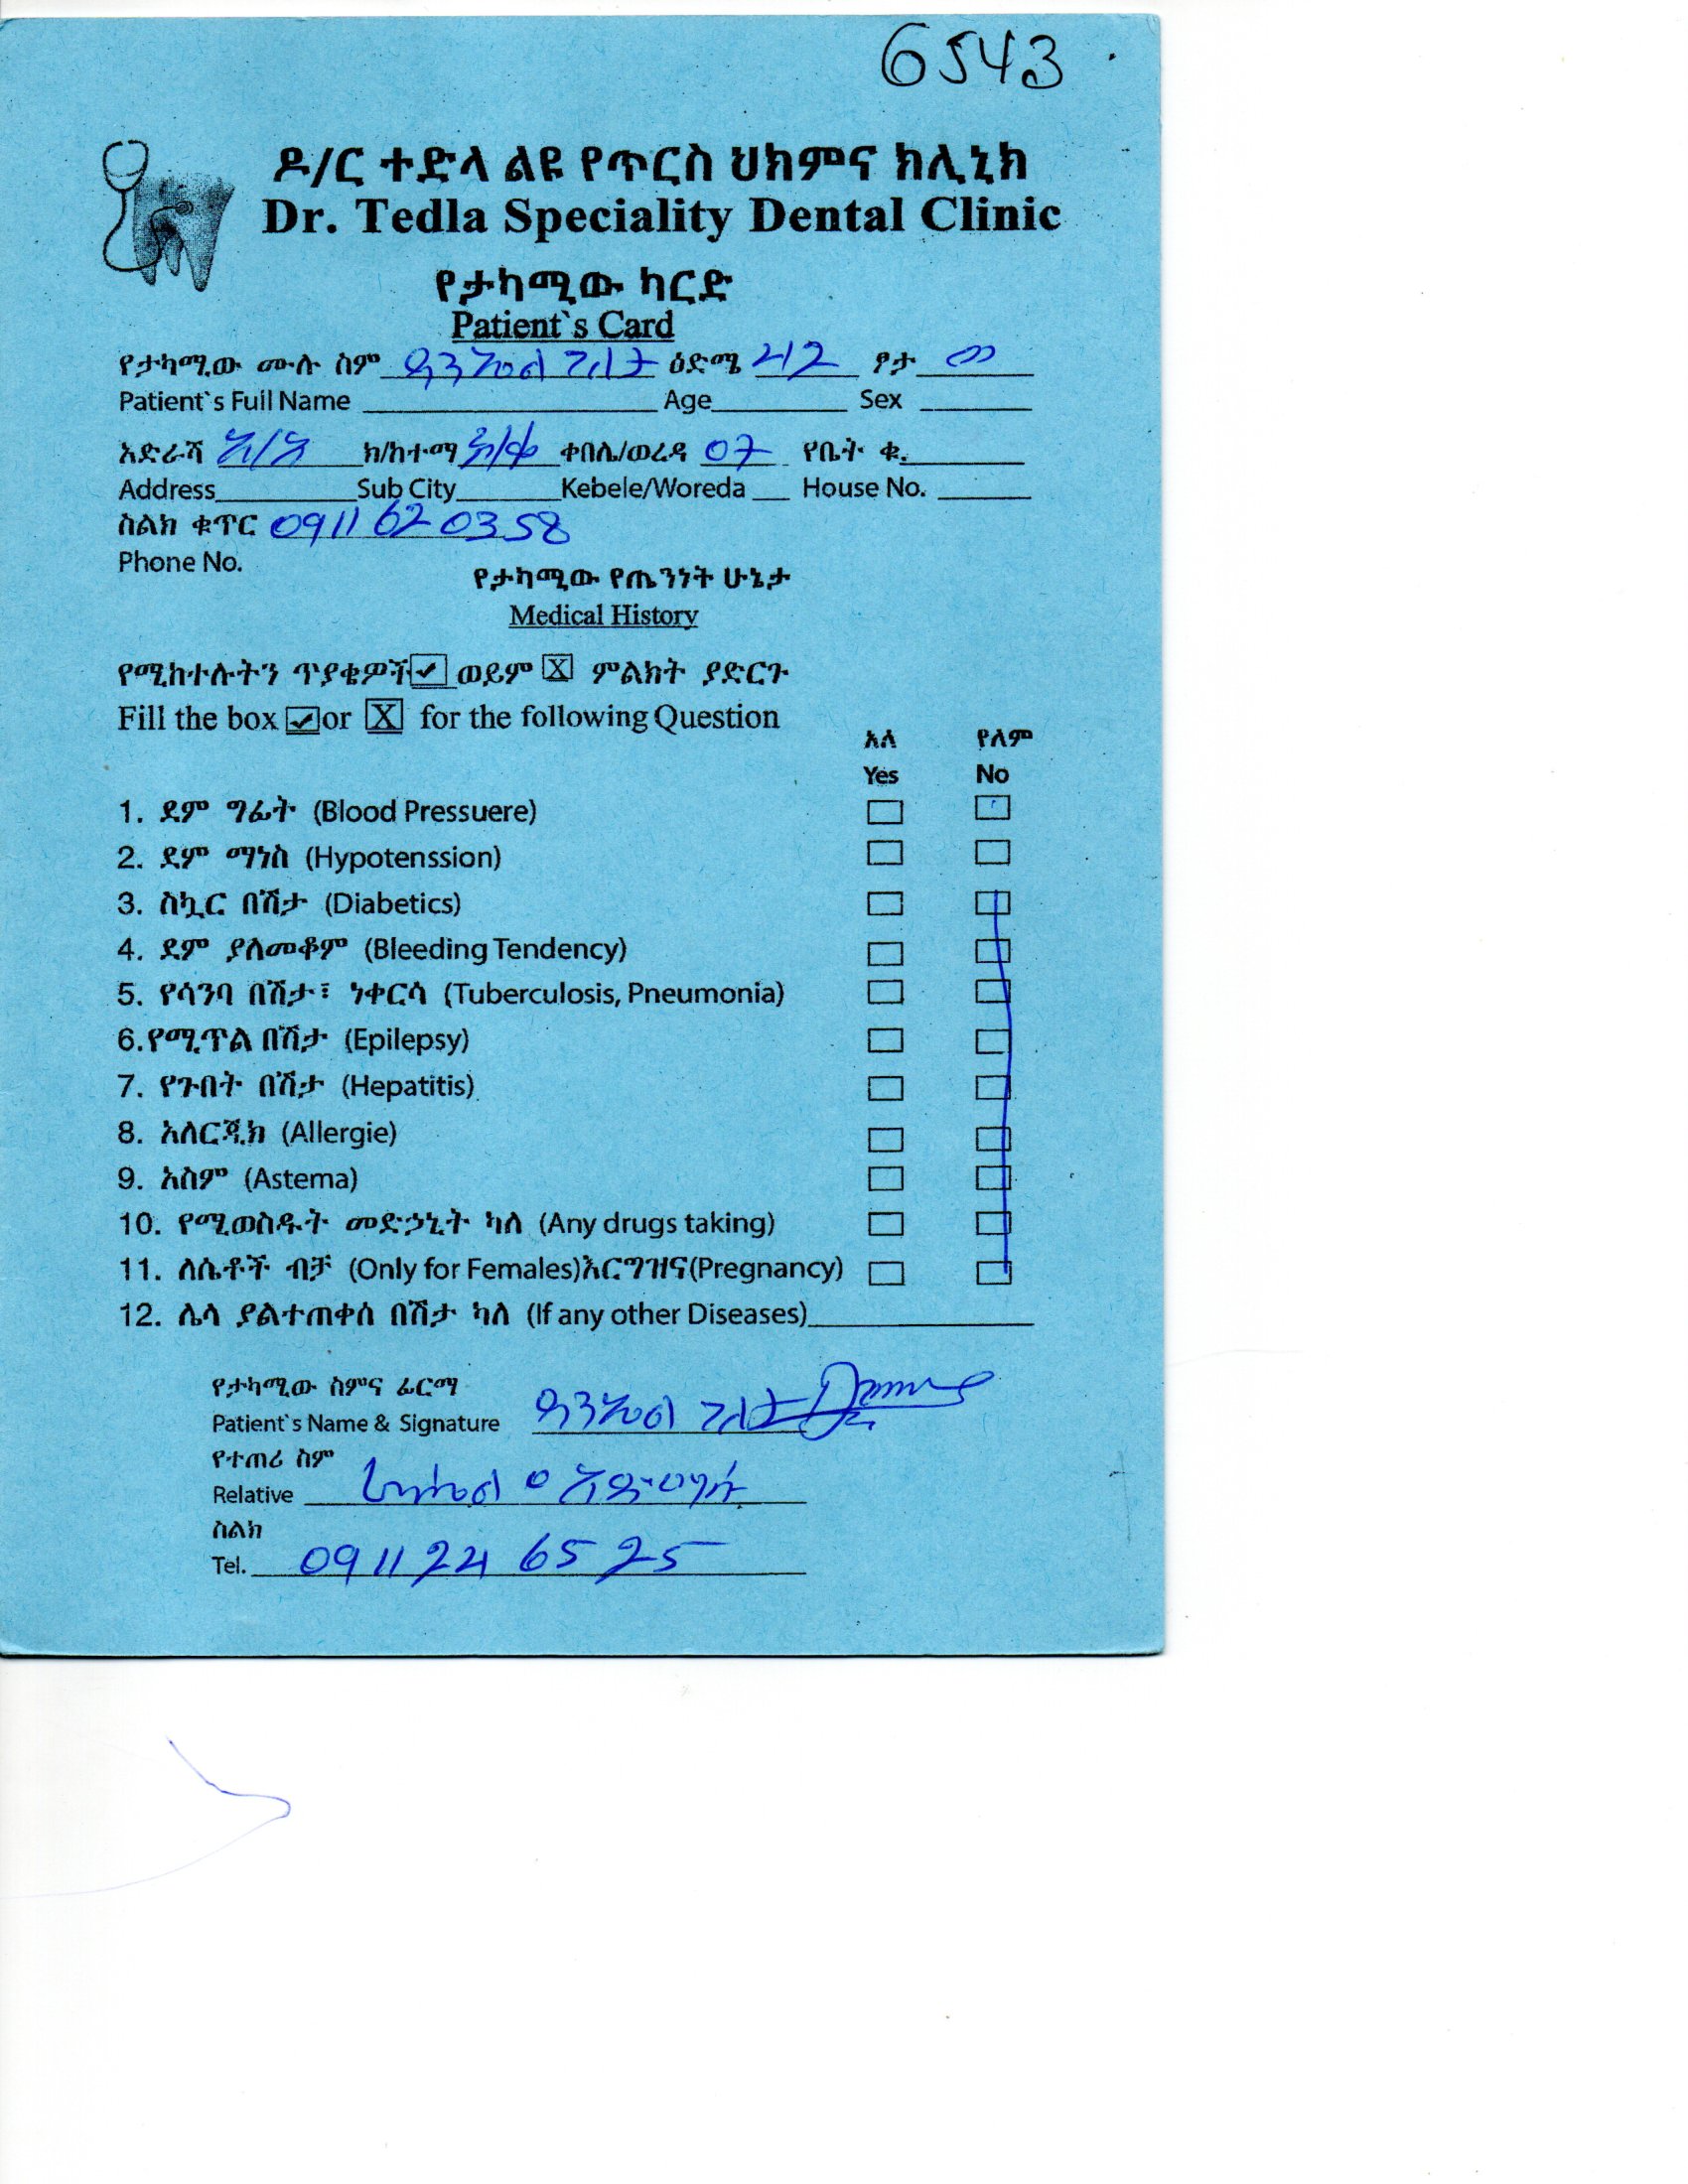 6543
ዶ/ር ተድላ ልዩ የጥርስ ህክምና ክሊኒክ
Dr. Tedla Speciality Dental Clinic
የታካሚው ካርድ
Patient`s Card
የታካሚው ሙሉ ስም ዳንኤል ገለታ ዕድሜ 42 ፆታ ወ
Patient`s Full Name Age Sex
አድራሻ አ/አ ክ/ከተማ ን/ቀ/ቀበሌ/ወረዳ 07 የቤት ቁ.
Address Sub City Kebele/Woreda House No.
ስልክ ቁጥር 0911 62 03 58
Phone No.
የታካሚው የጤንነት ሁኔታ
Medical History
የሚከተሉትን ጥያቄዎች ✓ ወይም X ምልክት ያድርጉ
Fill the box ✓ or X for the following Question
አለ የለም
Yes No
1. ደም ግፊት (Blood Pressuere)
2. ደም ማነስ (Hypotenssion)
3. ስኳር በሽታ (Diabetics)
4. ደም ያለመቆም (Bleeding Tendency)
5. የሳንባ በሽታ፣ ነቀርሳ (Tuberculosis, Pneumonia)
6.የሚጥል በሽታ (Epilepsy)
7. የጉበት በሽታ (Hepatitis)
8. አለርጂክ (Allergie)
9. አስም (Astema)
10. የሚወስዱት መድኃኒት ካለ (Any drugs taking)
11. ለሴቶች ብቻ (Only for Females)እርግዝና(Pregnancy)
12. ሌላ ያልተጠቀሰ በሽታ ካለ (If any other Diseases)
የታካሚው ስምና ፊርማ
Patient`s Name & Signature ዳንኤል ገለታ
የተጠሪ ስም
Relative
ስልክ
Tel. 0911 24 65 25